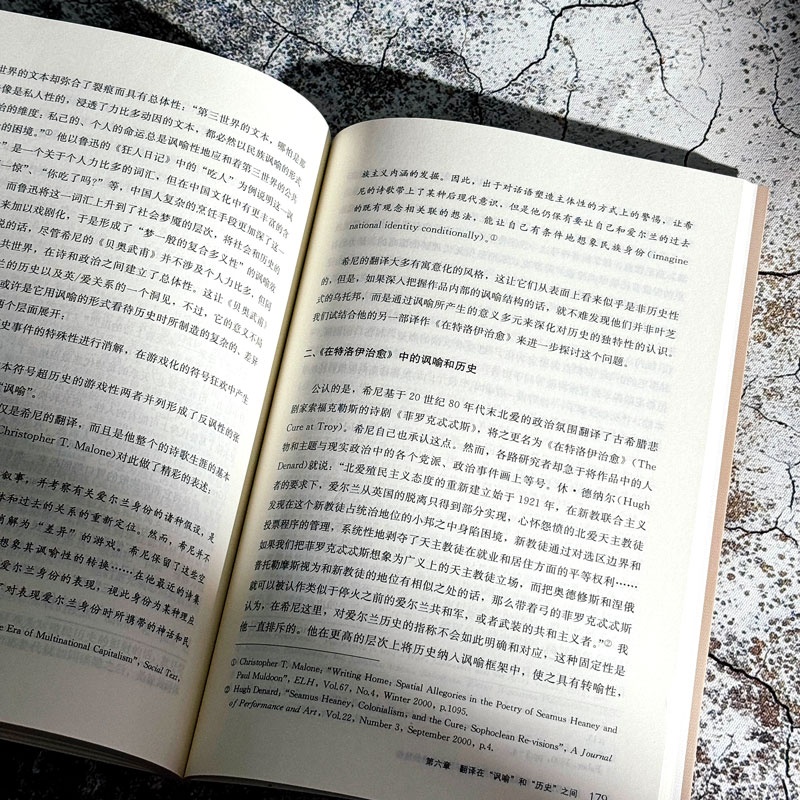 世界的文本却弥合了裂痕而具有总体性：“第三世界的文本，哪怕是那
像是私人性的，浸透了力比多动因的文本，都必然以民族讽喻的形式
治的维度：私己的、个人的命运总是讽喻性地应和着第三世界的公共
的困境。”①他以鲁迅的《狂人日记》中的“吃人”为例说明这一讽
”是一个关于个人力比多的词汇，但在中国文化中有更丰富的含
一惊”、“你吃了吗?”等，中国人复杂的烹饪手段更加深了这一
而鲁迅将这一词汇上升到了社会梦魇的层次，将社会和历史的
来加以戏剧化，于是形成了“梦一般的复合多义性”的讽喻效
说的话，尽管希尼的《贝奥武甫》并不涉及个人力比多，但同
共世界，在诗和政治之间建立了总体性。这让《贝奥武甫》
兰的历史以及英/爱关系的一个洞见，不过，它的意义不局
或许是它用讽喻的形式看待历史时所制造的复杂的、差异
两个层面展开：
史事件的特殊性进行消解，在游戏化的符号狂欢中产生
本符号超历史的游戏性两者并列形成了反讽性的张
“讽喻”。
仅是希尼的翻译，而且是他整个的诗歌生涯的基本
Christopher T. Malone)对此做了精彩的表述：
叙事，并考察有关爱尔兰身份的诸种假设，是
体和过去的关系的重新定位。然而，希尼并不
消解为“差异”的游戏。希尼保留了这些空
想象其讽喻性的转换……在他最近的诗集
爱尔兰身份的表现，视此身份为某种理应
了对表现爱尔兰身份时所携带的神话和民
e Era of Multinational Capitalism”, Social Text,
族主义内涵的发掘。因此，出于对话语塑造主体性的方式上的警惕，让希
尼的诗歌带上了某种后现代意识，但是他仍保有要让自己和爱尔兰的过去
的既有观念相关联的想法，能让自己有条件地想象民族身份(imagine
national identity conditionally)。①
希尼的翻译大多有寓意化的风格，这让它们从表面上看来似乎是非历史性
的，但是，如果深入把握作品内部的讽喻结构的话，就不难发现他们并非叶芝
式的乌托邦，而是通过讽喻所产生的意义多元来深化对历史的独特性的认识。
我们试结合他的另一部译作《在特洛伊治愈》来进一步探讨这个问题。
二、《在特洛伊治愈》中的讽喻和历史
公认的是，希尼基于20世纪80年代末北爱的政治氛围翻译了古希腊悲
剧家索福克勒斯的诗剧《菲罗克忒忒斯》，将之更名为《在特洛伊治愈》(The
Cure at Troy)。希尼自己也承认这点。然而，各路研究者却急于将作品中的人
物和主题与现实政治中的各个党派、政治事件画上等号。休·德纳尔(Hugh
Denard)就说：“北爱殖民主义态度的重新建立始于1921年，在新教联合主义
者的要求下，爱尔兰从英国的脱离只得到部分实现，心怀怨愤的北爱天主教徒
发现在这个新教徒占统治地位的小邦之中身陷困境，新教徒通过对选区边界和
投票程序的管理，系统性地剥夺了天主教徒在就业和居住方面的平等权利……
如果我们把菲罗克忒忒斯想象为广义上的天主教徒立场，而把奥德修斯和涅俄
普托勒摩斯视为和新教徒的地位有相似之处的话，那么带着弓的菲罗克忒忒斯
就可以被认作类似于停火之前的爱尔兰共和军，或者武装的共和主义者。”②我
认为，在希尼这里，对爱尔兰历史的指称不会如此明确和对应，这种固定性是
他一直排斥的。他在更高的层次上将历史纳入讽喻框架中，使之具有转喻性，
① Christopher T. Malone; “Writing Home; Spatial Allegories in the Poetry of Seamus Heaney and
Paul Muldoon”, ELH, Vol.67, No.4, Winter 2000, p.1095.
② Hugh Denard, “Seamus Heaney, Colonialism, and the Cure; Sophoclean Re-visions”, A Journal
of Performance and Art, Vol.22, Number 3, September 2000, p.4.
第六章 翻译在“讽喻”和“历史”之间 179